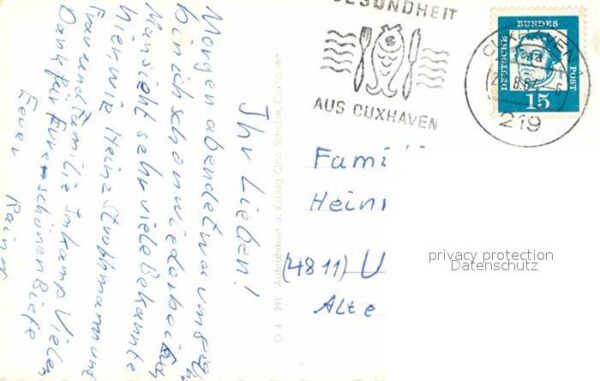 Ihr Lieben!
Morgen abend etwa um
bin ich schon wieder bei Euch
Man sieht sehr viele Bekannte
hier wie Heinz Struphmann und
Frau und Familie Imkamp. Vielen
Dank für Euren schönen Brief
Euer
Rainer
GESUNDHEIT
AUS CUXHAVEN
CUXHAVEN
219
DEUTSCHE BUNDESPOST
15
G 4 291 Aufnahmen u. Verlag Otto Schulze, Cuxhaven
Fami
Hein
(4811) U
Alte
privacy protection
Datenschutz